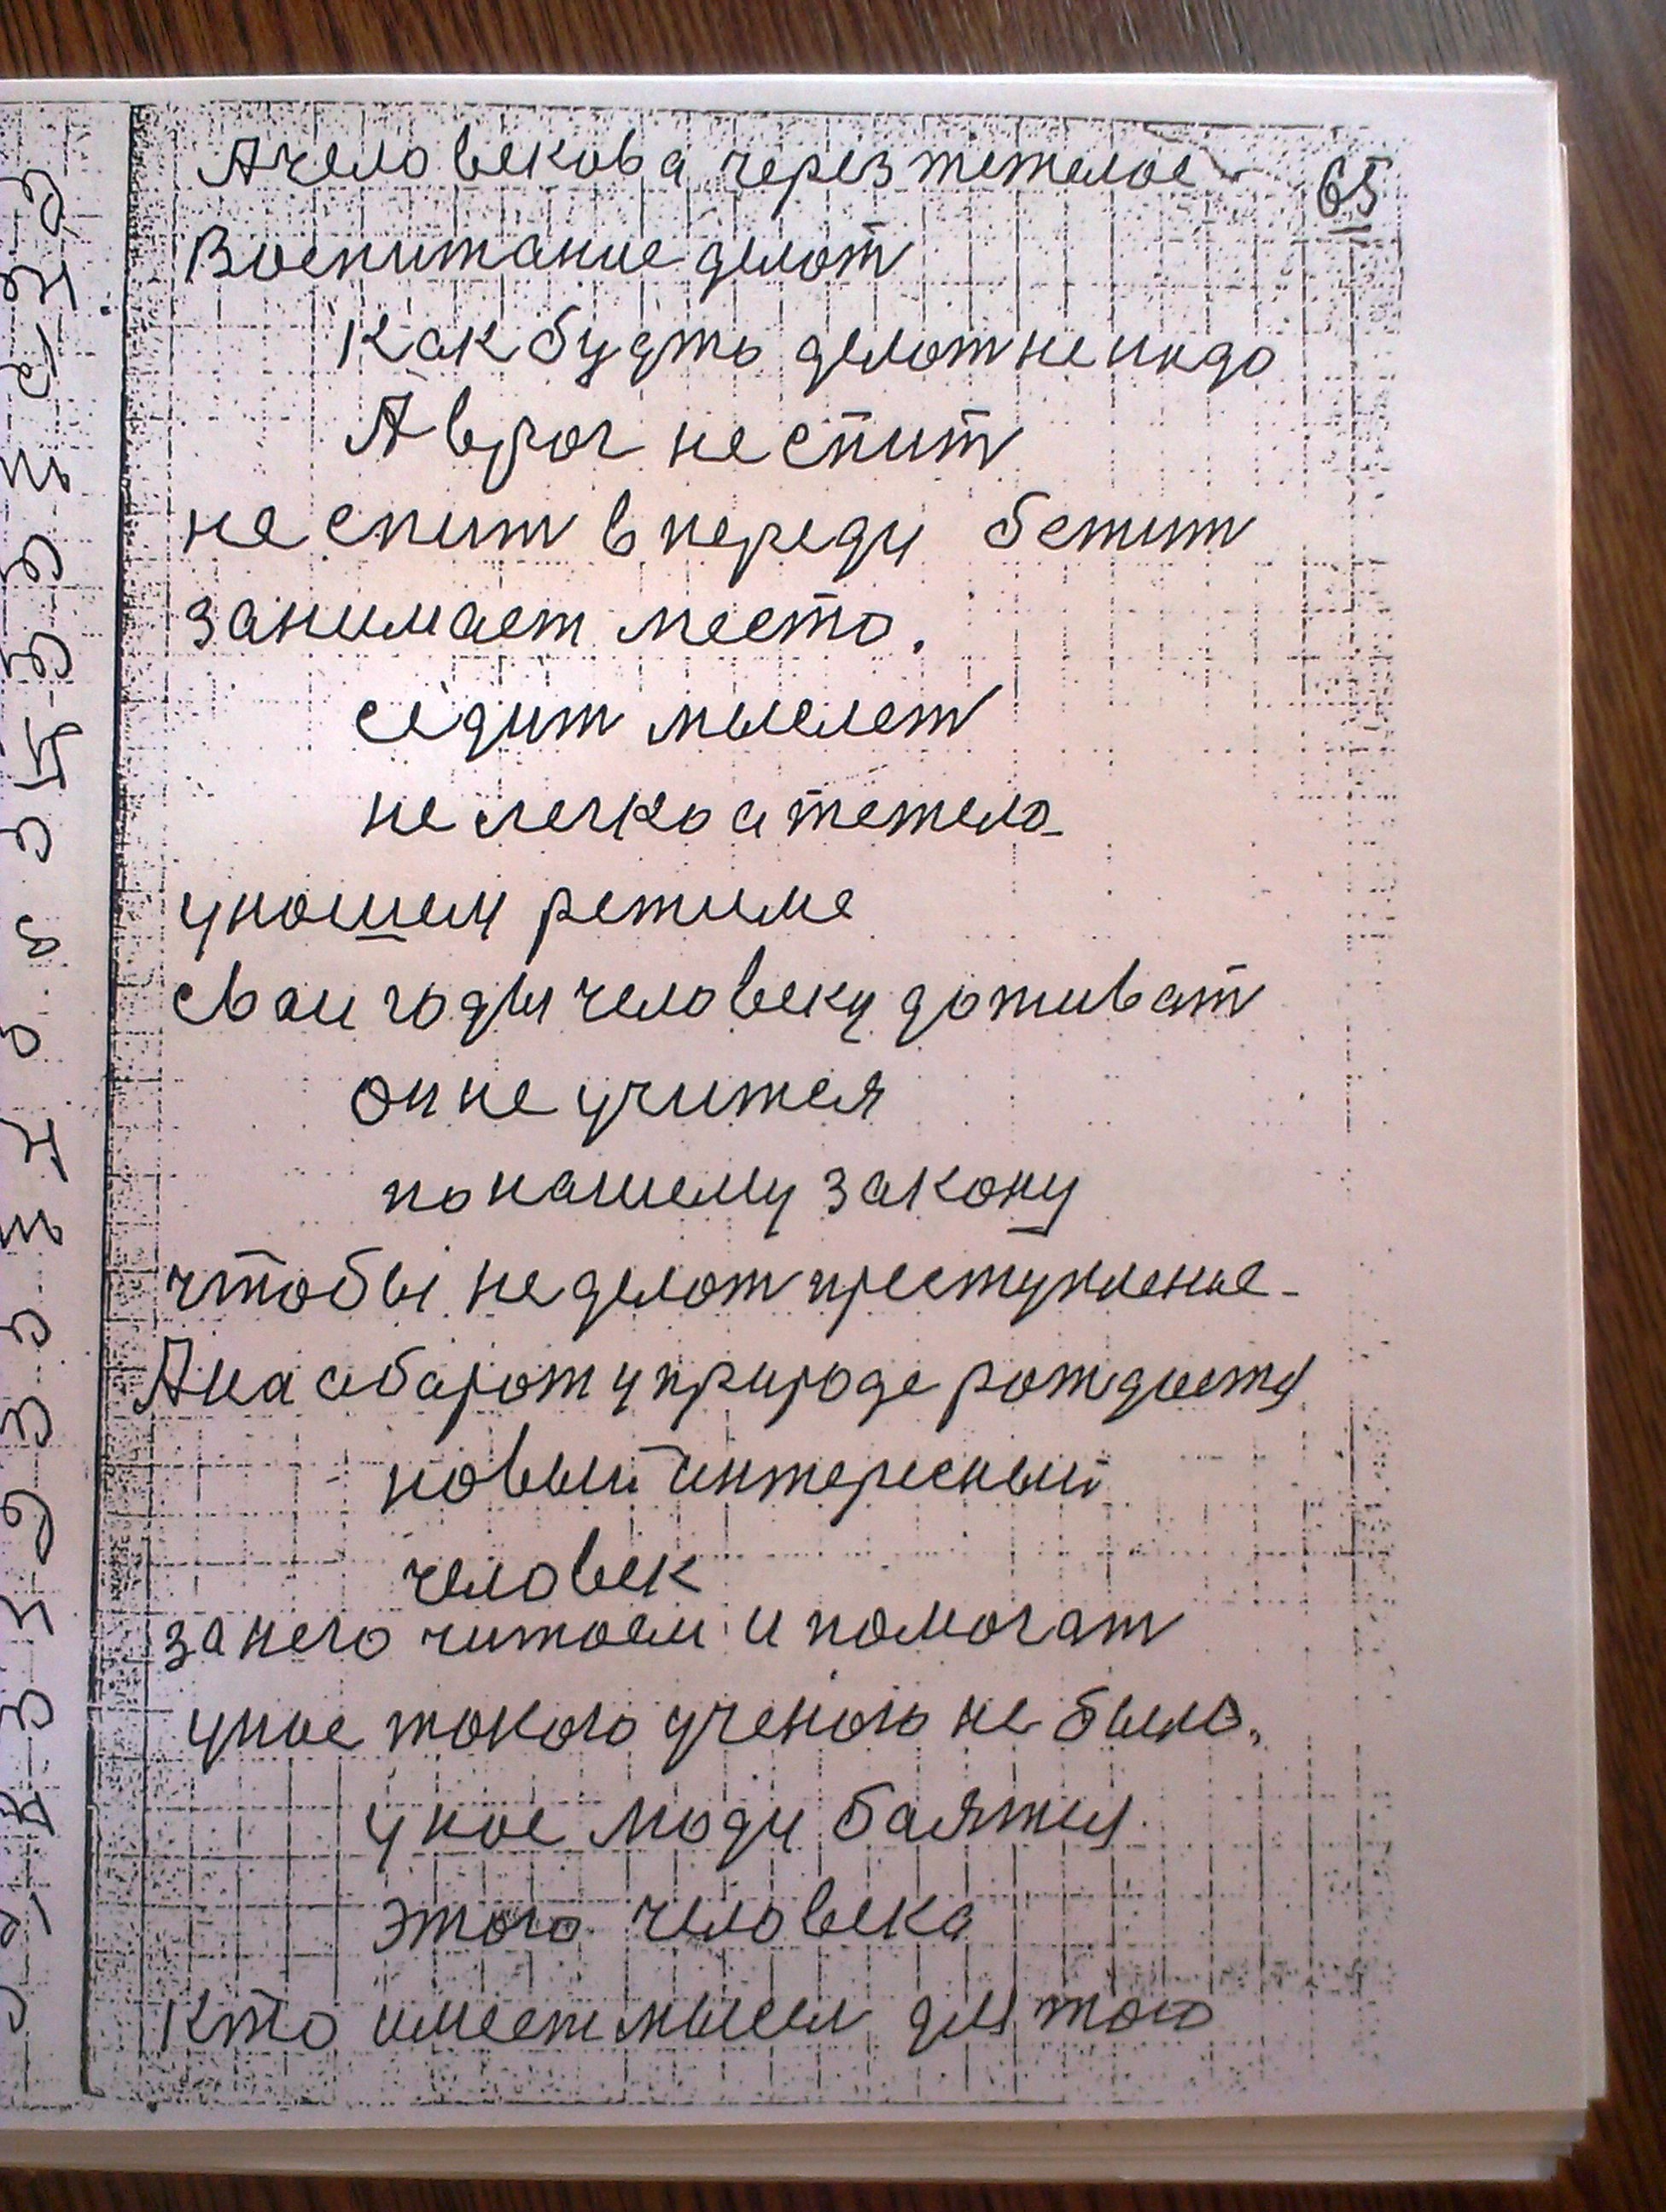 65
А человекова через тежелое
Воспитание делат
как будть делат не надо
А враг не спит
не спит впереди бежит
занимает место.
седит мыслет
не легко а тежело
унашем режиме
сваи годы человеку доживат
он не учится
по нашему закону
чтобы не делат преступление-
А на абарот уприроде рождается
новый интересный
человек
за него читаем и помогат
унас такого ученого не было.
унас люди баятся
этого человека
Кто имеет мысел для того